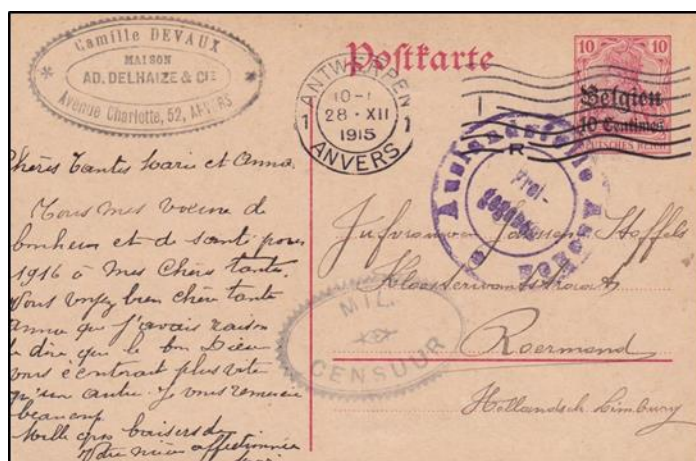 Camille DEVAUX
MAISON
AD. DELHAIZE & CIE
Avenue Charlotte, 52, ANVERS
Postkarte
ANTWERPEN
1 10-1 1
28 · XII
1915
ANVERS
10 10
Belgien
10 Centimes
DEUTSCHES REICH
Auslandsstelle
Frei-
gegeben
MIL.
CENSUUR
Chères Tantes Marie et Anna
Tous mes voeux de
bonheur et de santé pour
1916 à mes Chères tantes.
Vous voyez bien chère tante
Anna que j'avais raison
de dire que le bon Dieu
vous plus vite
qu'un autre. Je vous remercie
beaucoup
Mille gros baisers de
Votre nièce affectionnée
Janssens Stoffels
Kloosterwandstraat
Roermond
Hollandsch Limburg